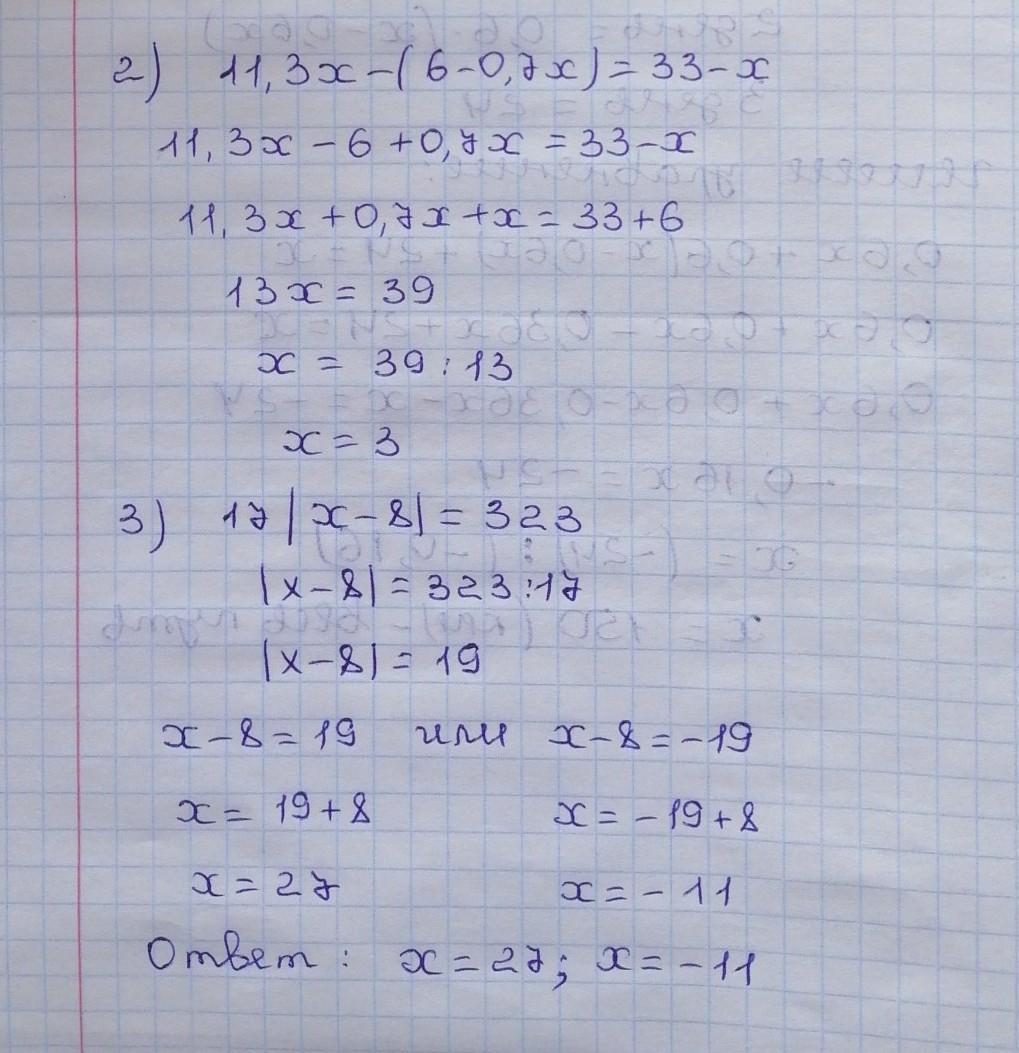 2) 11,3x-(6-0,7x)=33-x
11,3x-6+0,7x=33-x
11,3x+0,7x+x=33+6
13x=39
x=39:13
x=3
3) 17|x-8|=323
|x-8|=323:17
|x-8|=19
x-8=19 или x-8=-19
x=19+8 x=-19+8
x=27 x=-11
Ответ: x=27; x=-11